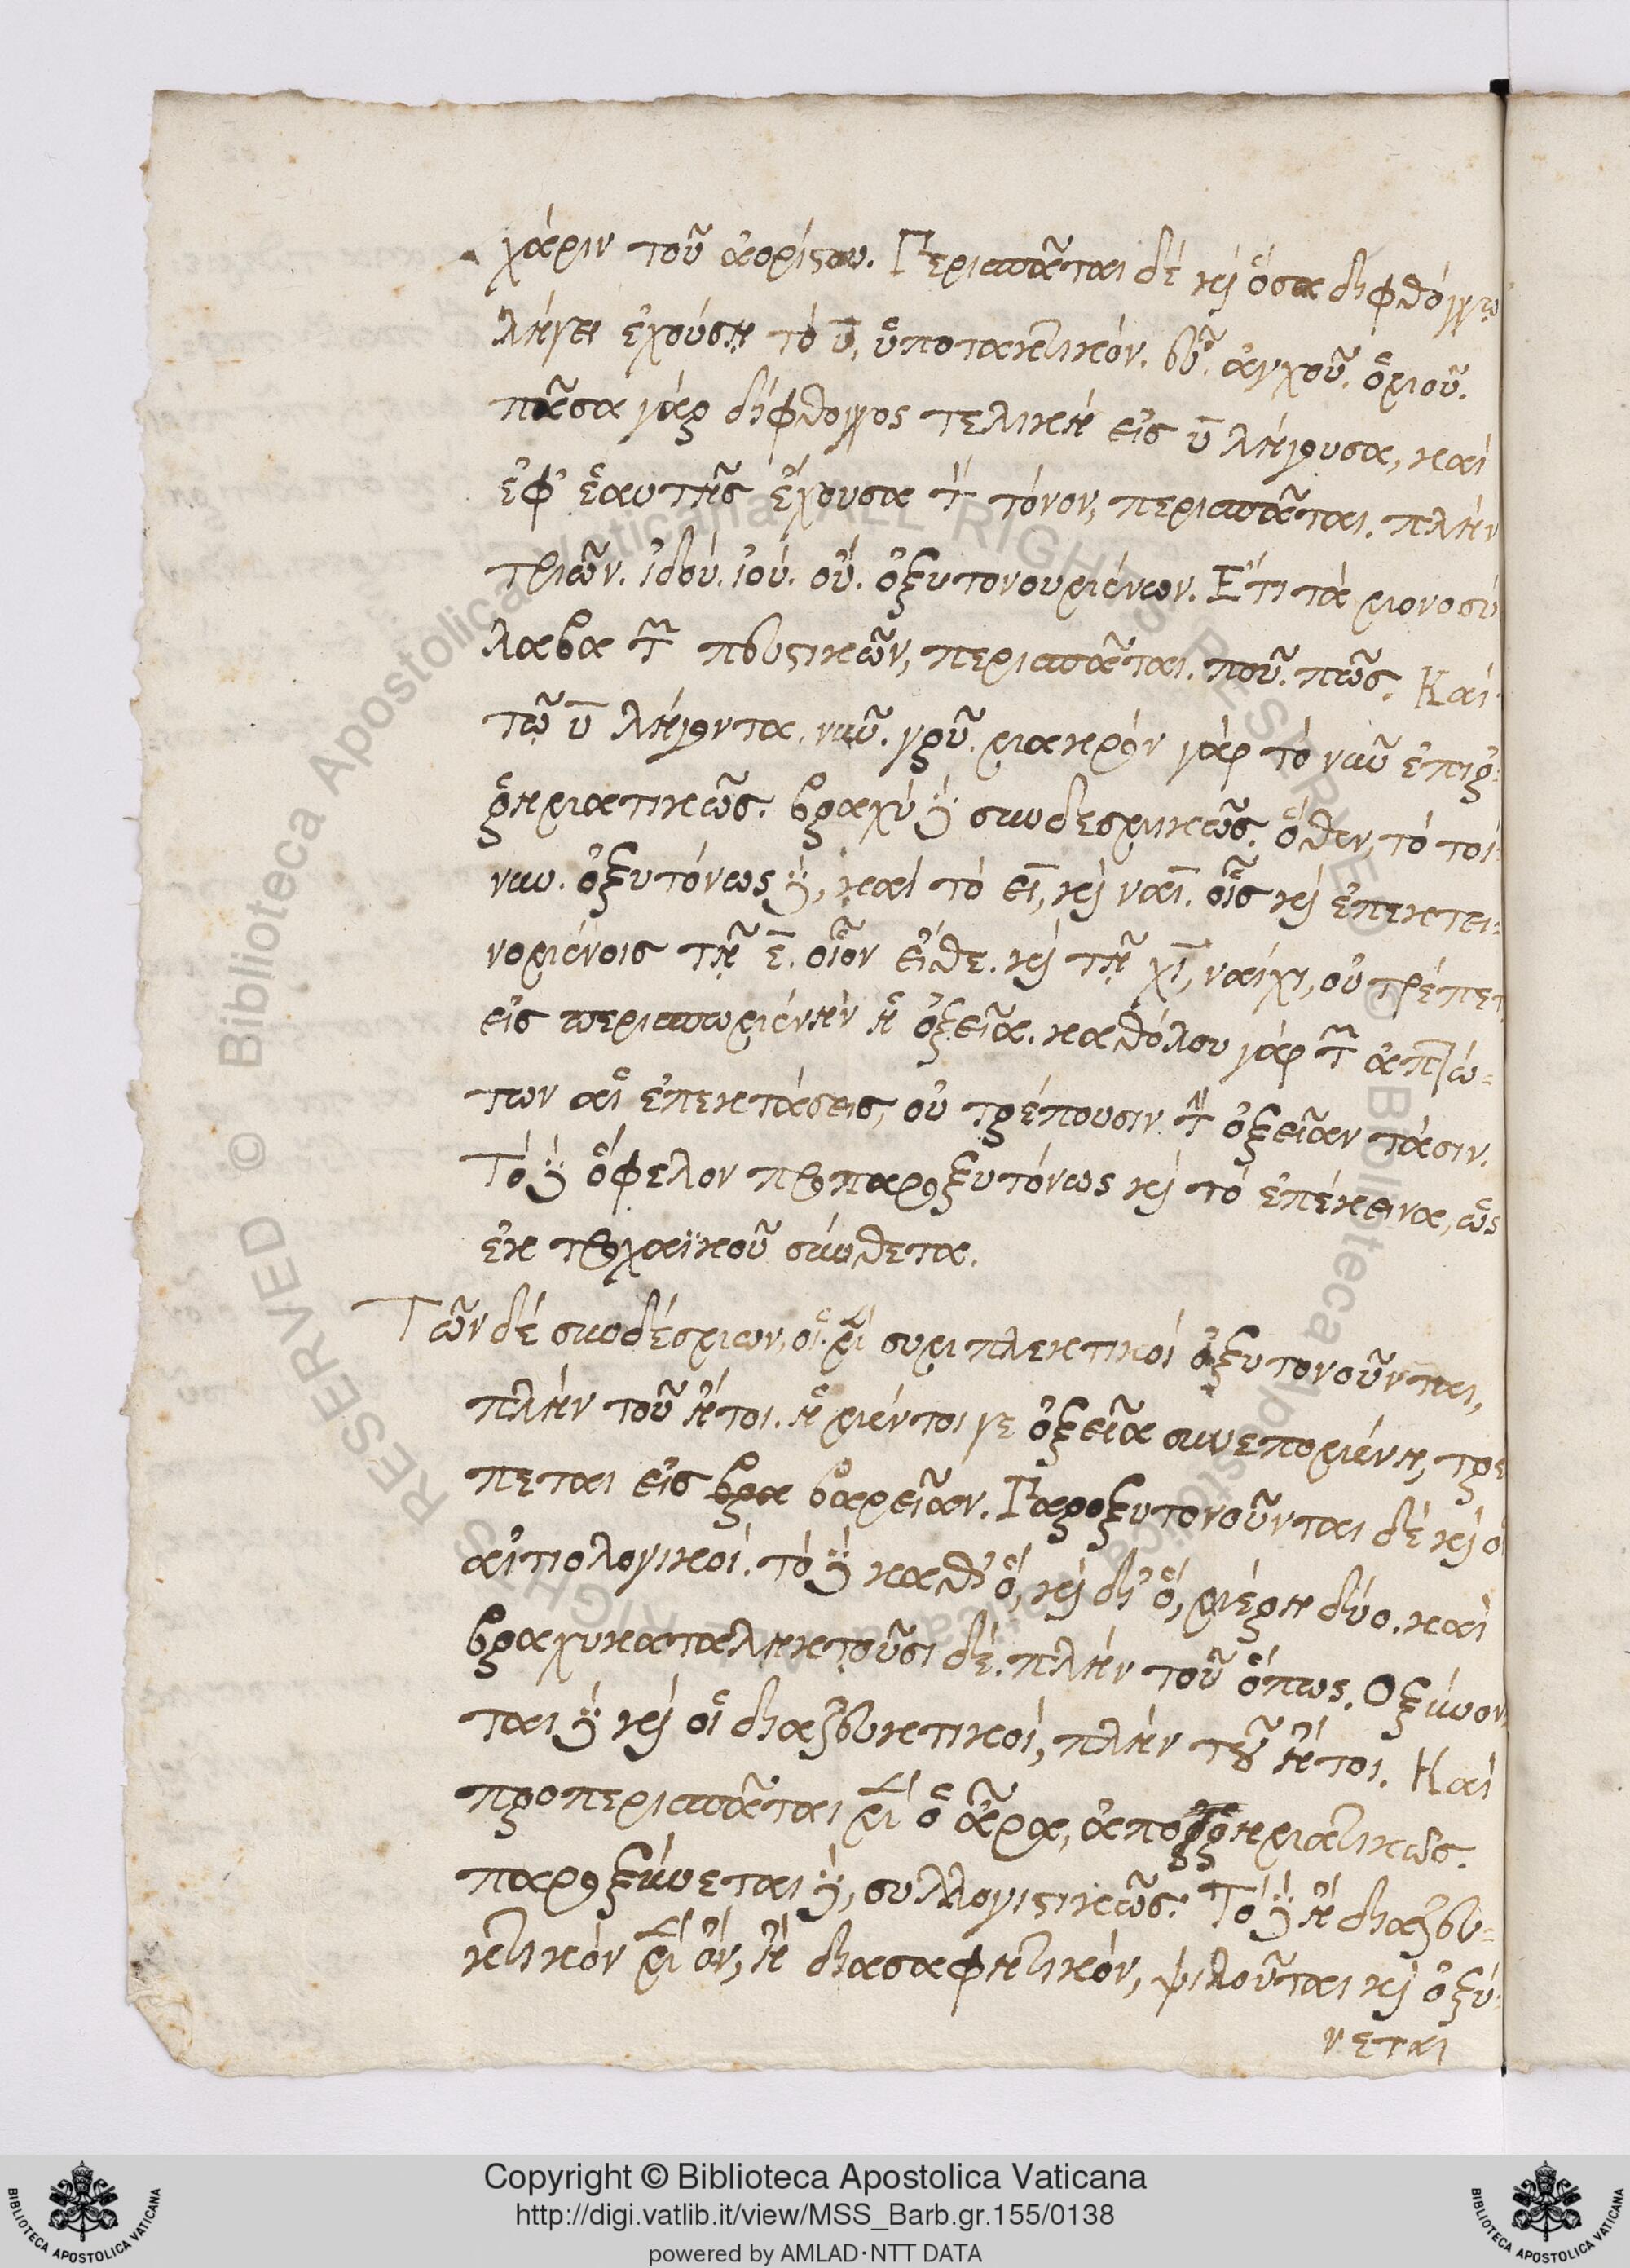 χάριν τοῦ ἀορίστου. Περισπᾶται δὲ κỳ ὅσα διφθόγγῳ
λήγει ἐχούσῃ τὸ υ̅, ὑποτακτικόν. εὖ. ἀγχοῦ. ὁμοῦ.
πᾶσα γὰρ δίφθογγος τελικὴ εἰς υ̅ λήγουσα, καὶ
ἐφ' ἑαυτῆς ἔχουσα τ̅ τόνον, περισπᾶται. πλὴν
τριῶν. ἰδού. ἰού. οὔ. ὀξυτονουμένων. Ἔτι τὰ μονοσύ
λαβα τ̅ πευστικῶν, περισπᾶται. ποῦ. πῶς. Καὶ
τῷ υ̅ λήγοντα. νῦν. γρῦ. μακρὸν γὰρ τὸ νῦν ἐπιρ-
ῥηματικῶς. βραχὺ δὲ συνδεσμικῶς. ὅθεν, τὸ τοί-
νυν. ὀξυτόνως δὲ, καὶ τὸ ει̅, κỳ ναι̅. οἷς κỳ ἐπεκτει-
νομένοις τῇ ε̅. οἷον εἴθε. κỳ τῇ χι̅, ναίχι, οὐ τρέπετ
εἰς περισπωμένην ἡ ὀξεῖα. καθόλου γὰρ τ̅ ἀπτώ-
των αἱ ἐπεκτάσεις, οὐ τρέπουσιν τ̅ ὀξεῖαν τάσιν.
Τὸ δὲ ὄφελον προπαροξυτόνως κỳ τὸ ἐπέκεινα, ὡς
ἐκ τροχαϊκοῦ σύνθετα.
Τῶν δὲ συνδέσμων, οἱ μὲν συμπλεκτικοὶ ὀξυτονοῦνται,
πλὴν τοῦ ἤτοι. ἡ μέντοι γε ὀξεῖα συνεπομένη, τρέ
πεται εἰς βρα βαρεῖαν. Παροξυτονοῦνται δὲ κỳ οἱ
αἰτιολογικοί. τὸ δὲ καθ' ὅ, κỳ δι' ὅ, μέρη δύο. καὶ
βραχυκαταληκτοῦσι δέ. πλὴν τοῦ ὅπως. Ὀξύνον
ται δὲ κỳ οἱ διαζευκτικοί, πλὴν τοῦ ἤτοι. Καὶ
προπερισπᾶται μὲν ὁ ἆρα, ἀπορρηματικῶς.
παροξύνεται δὲ, συλλογιστικῶς. Τὸ δὲ ἢ διαζευ-
κτικὸν μὲν ὄν, ἢ διασαφητικόν, ψιλοῦται κỳ ὀξύ-
νεται
Copyright © Biblioteca Apostolica Vaticana
http://digi.vatlib.it/view/MSS_Barb.gr.155/0138
powered by AMLAD·NTT DATA